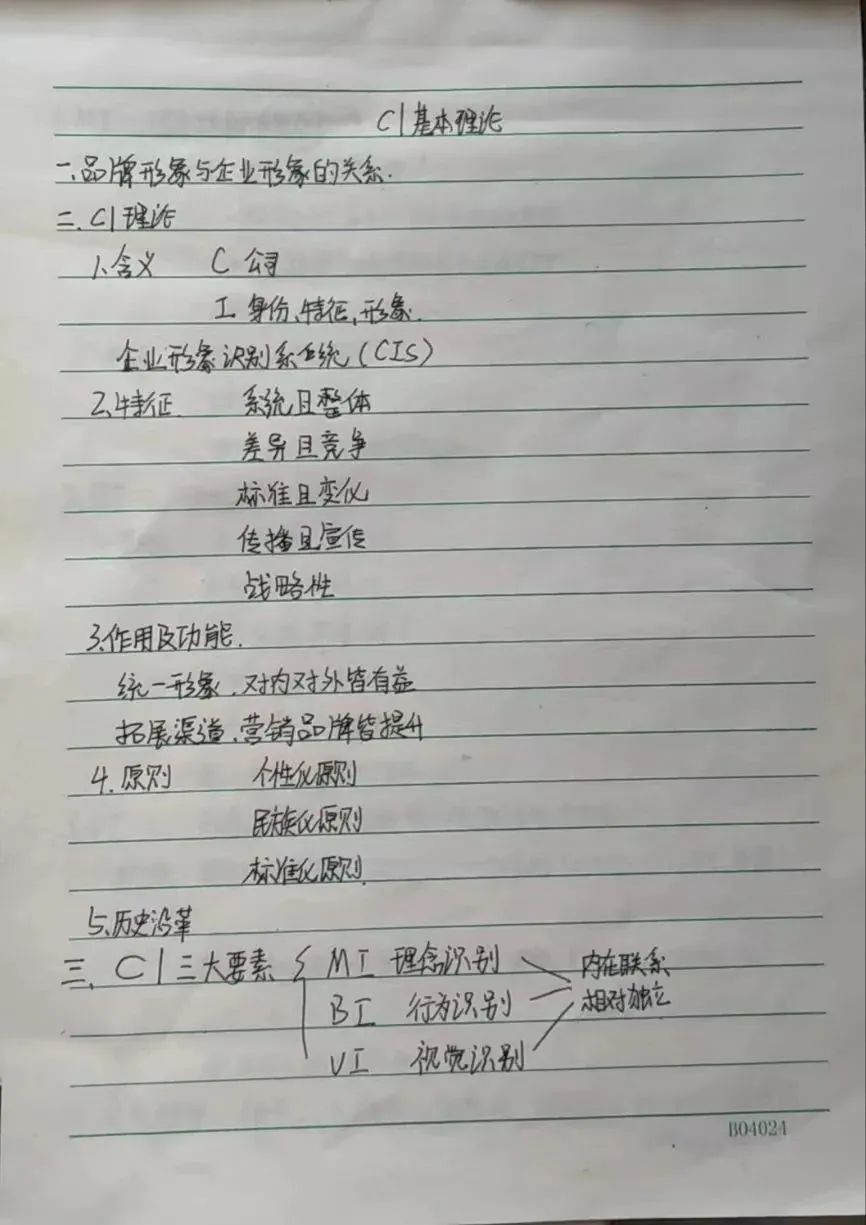 CI基本理论
一、品牌形象与企业形象的关系.
二、CI理论
1、含义 C 公司
I 身份、特征、形象.
企业形象识别系统(CIS)
2、特征 系统且整体
差异且竞争
标准且变化
传播且宣传
战略性
3、作用及功能.
统一形象、对内对外皆有益
拓展渠道、营销品牌皆提升
4、原则 个性化原则
民族化原则
标准化原则
5、历史沿革
三、CI三大要素 { MI 理念识别 内在联系
BI 行为识别 相对独立
VI 视觉识别
B04024